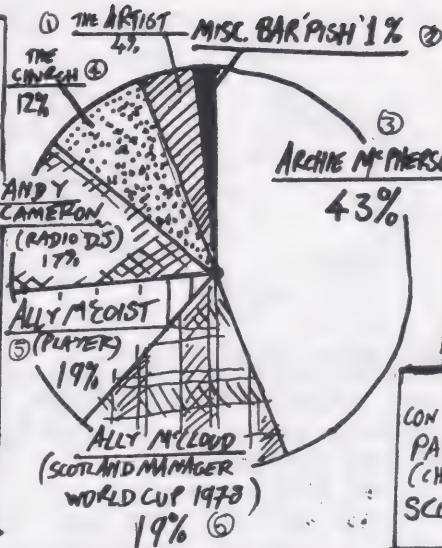 ① THE ARTIST
4%
MISC. BAR 'PISH' 1% ②
THE
CHURCH ④
12%
③
ARCHIE McPHERSO
43%
ANDY
CAMERON
(RADIO DJ)
17%
ALLY McCOIST
⑤ (PLAYER)
19%
ALLY McCLOUD
(SCOTLAND MANAGER
WORLD CUP 1978)
19% ⑥
CON
PA
(CH
SC